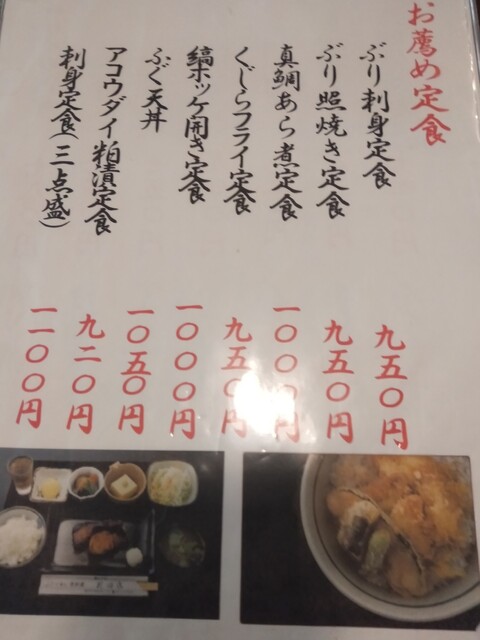 お薦め定食
ぶり刺身定食 九五〇円
ぶり照焼き定食 九五〇円
真鯛あら煮定食 一〇〇〇円
くじらフライ定食 九五〇円
縞ホッケ開き定食 一〇〇〇円
ふく天丼 一〇五〇円
アコウダイ粕漬定食 九二〇円
刺身定食(三点盛) 一一〇〇円